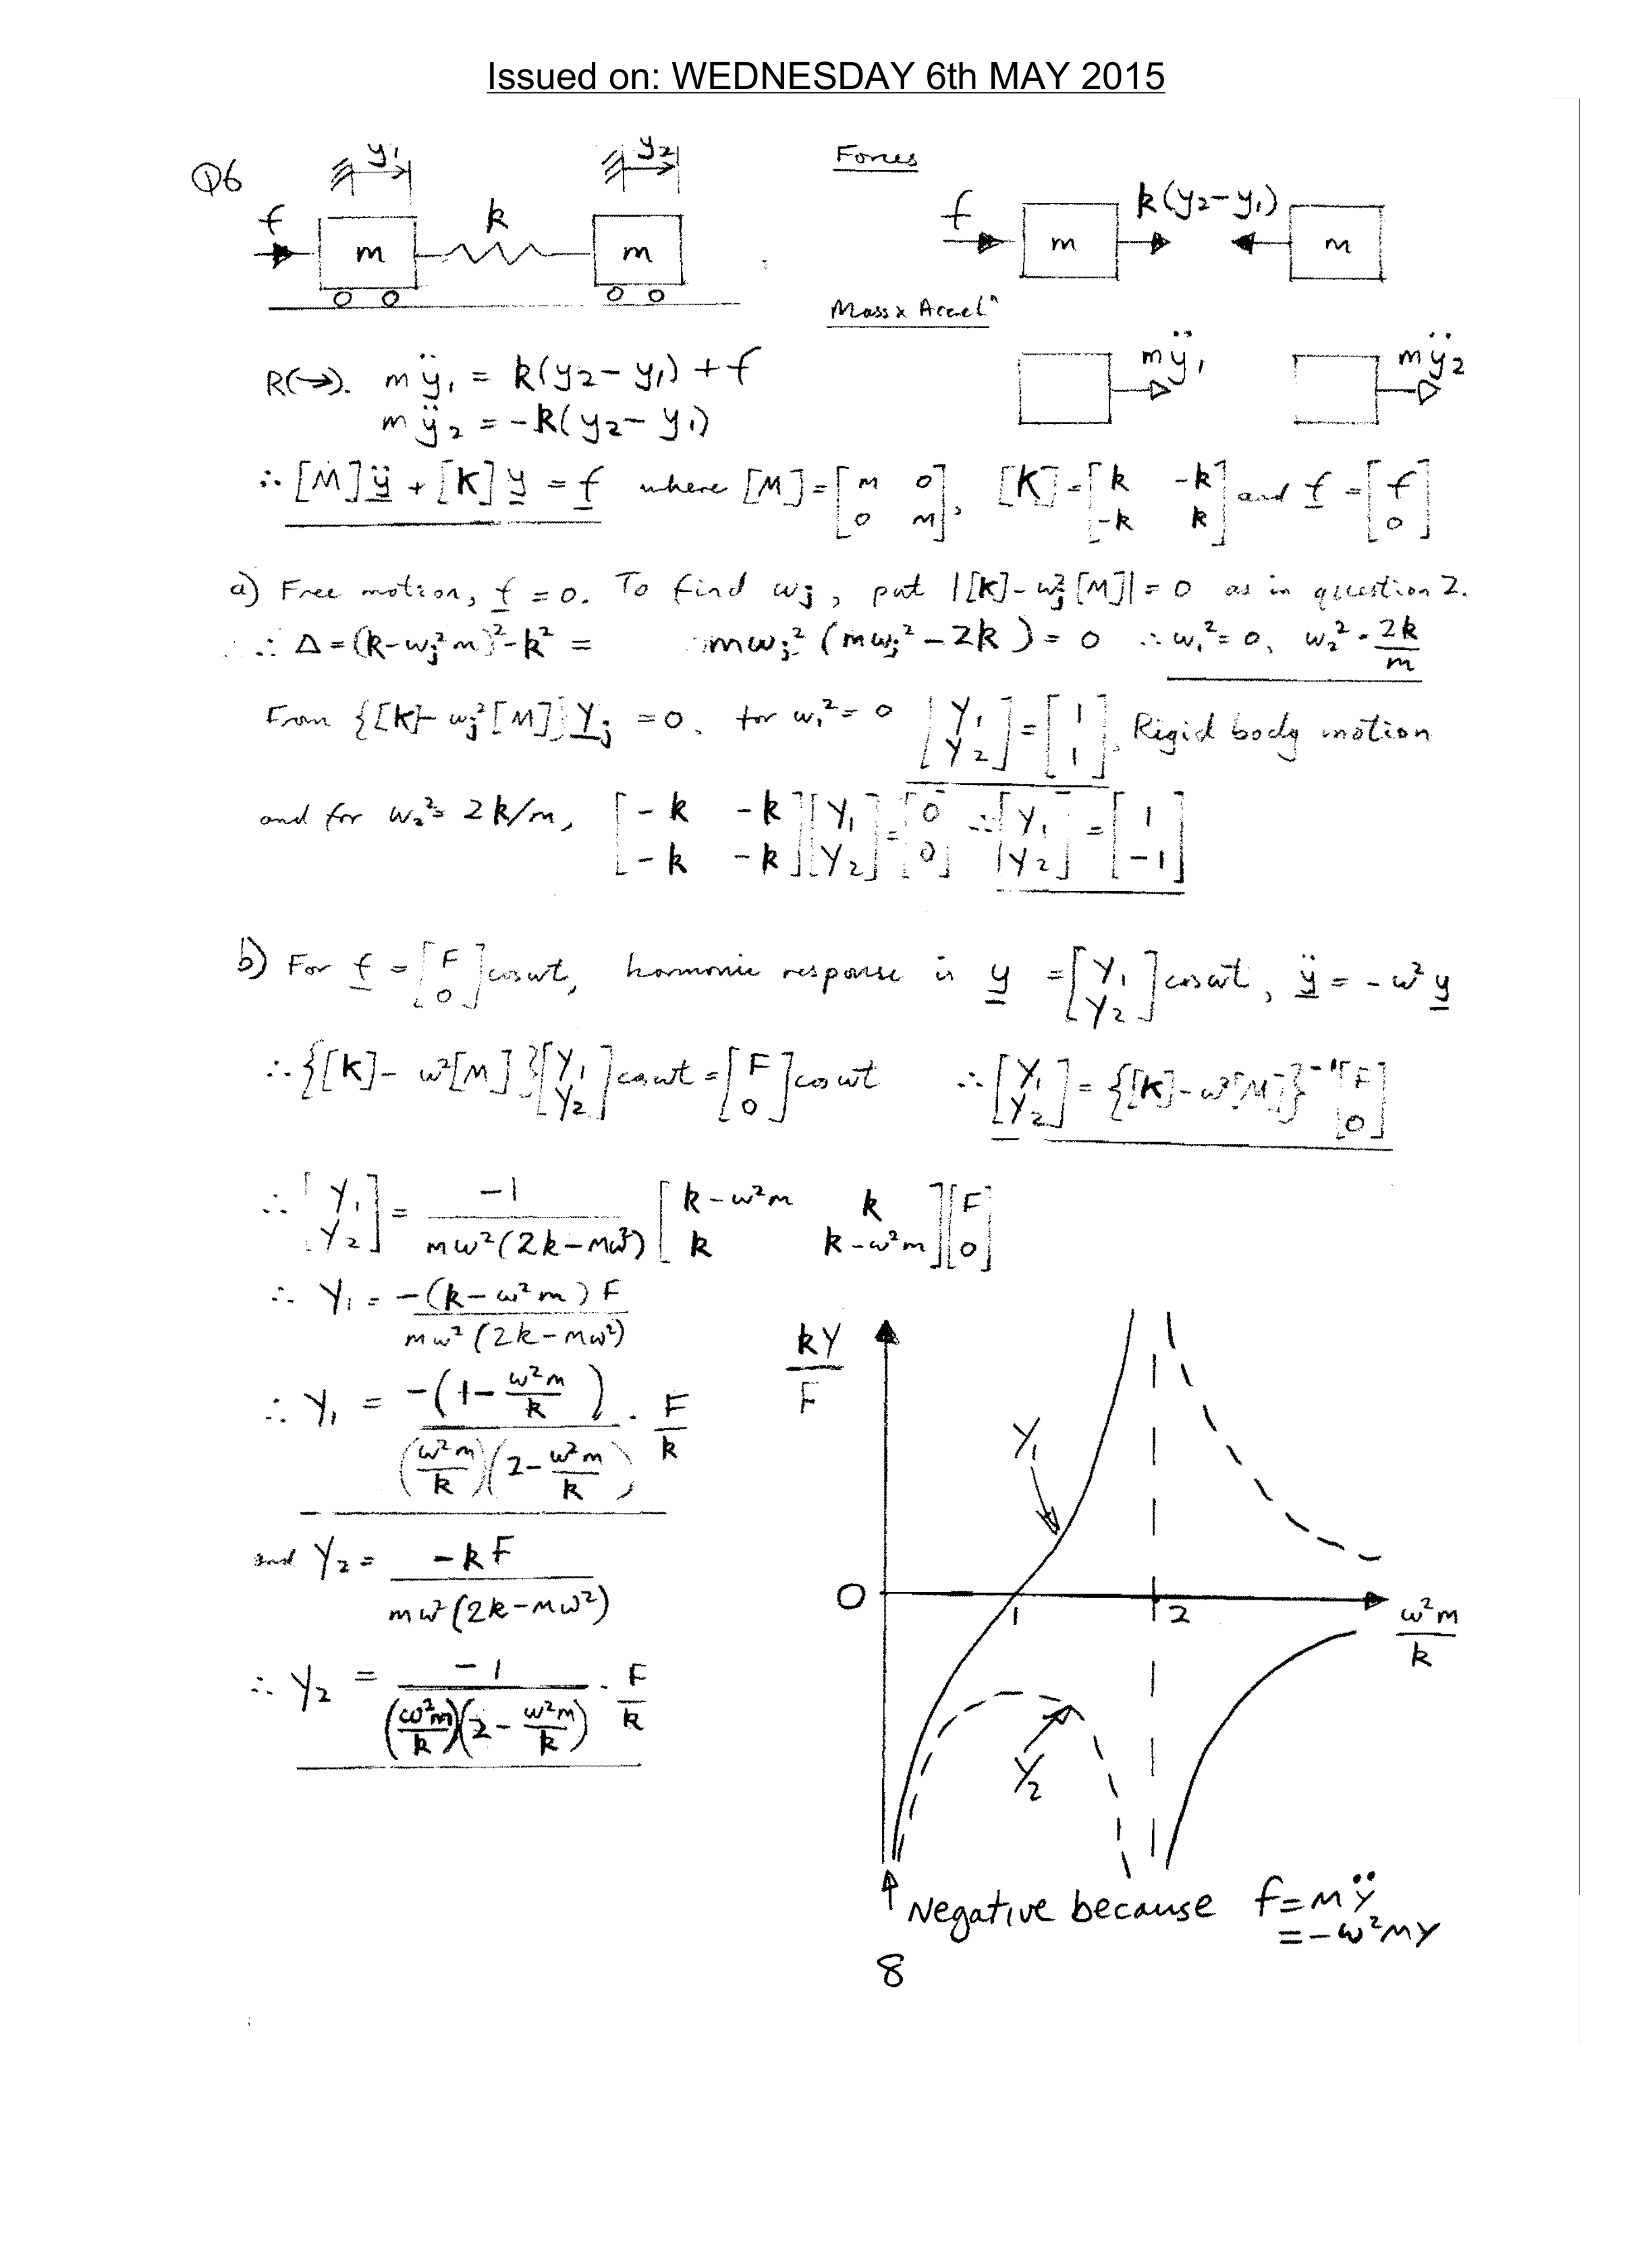 Issued on: WEDNESDAY 6th MAY 2015
Q6 y₁ y₂ f m k m
Forces
f m k(y₂-y₁) m
Mass x Accelⁿ
mÿ₁ mÿ₂
R(→). mÿ₁ = k(y₂-y₁)+f
mÿ₂ = -k(y₂-y₁)
∴ [M]ÿ + [K]y = f where [M] = [m 0; 0 m], [K] = [k -k; -k k] and f = [f; 0]
a) Free motion, f = 0. To find ωj, put |[K]-ωj²[M]| = 0 as in question 2.
∴ Δ = (k-ωj²m)²-k² = mωj²(mωj²-2k) = 0 ∴ ω₁² = 0, ω₂² = 2k/m
From {[K]-ωj²[M]}Yj = 0, for ω₁² = 0 [Y₁; Y₂] = [1; 1]. Rigid body motion
and for ω₂² = 2k/m, [-k -k; -k -k][Y₁; Y₂] = [0; 0] ∴ [Y₁; Y₂] = [1; -1]
b) For f = [F; 0]cosωt, harmonic response is y = [Y₁; Y₂]cosωt, ÿ = -ω²y
∴ {[K]-ω²[M]}[Y₁; Y₂]cosωt = [F; 0]cosωt ∴ [Y₁; Y₂] = {[K]-ω²[M]}⁻¹[F; 0]
∴ [Y₁; Y₂] = -1/(mω²(2k-mω²)) [k-ω²m k; k k-ω²m][F; 0]
∴ Y₁ = -(k-ω²m)F/(mω²(2k-mω²))
∴ Y₁ = -(1-ω²m/k)/((ω²m/k)(2-ω²m/k)) · F/k
and Y₂ = -kF/(mω²(2k-mω²))
∴ Y₂ = -1/((ω²m/k)(2-ω²m/k)) · F/k
kY/F
Y₁
0 1 2 ω²m/k
Y₂
↑ Negative because f=MŸ
=-ω²MY
8